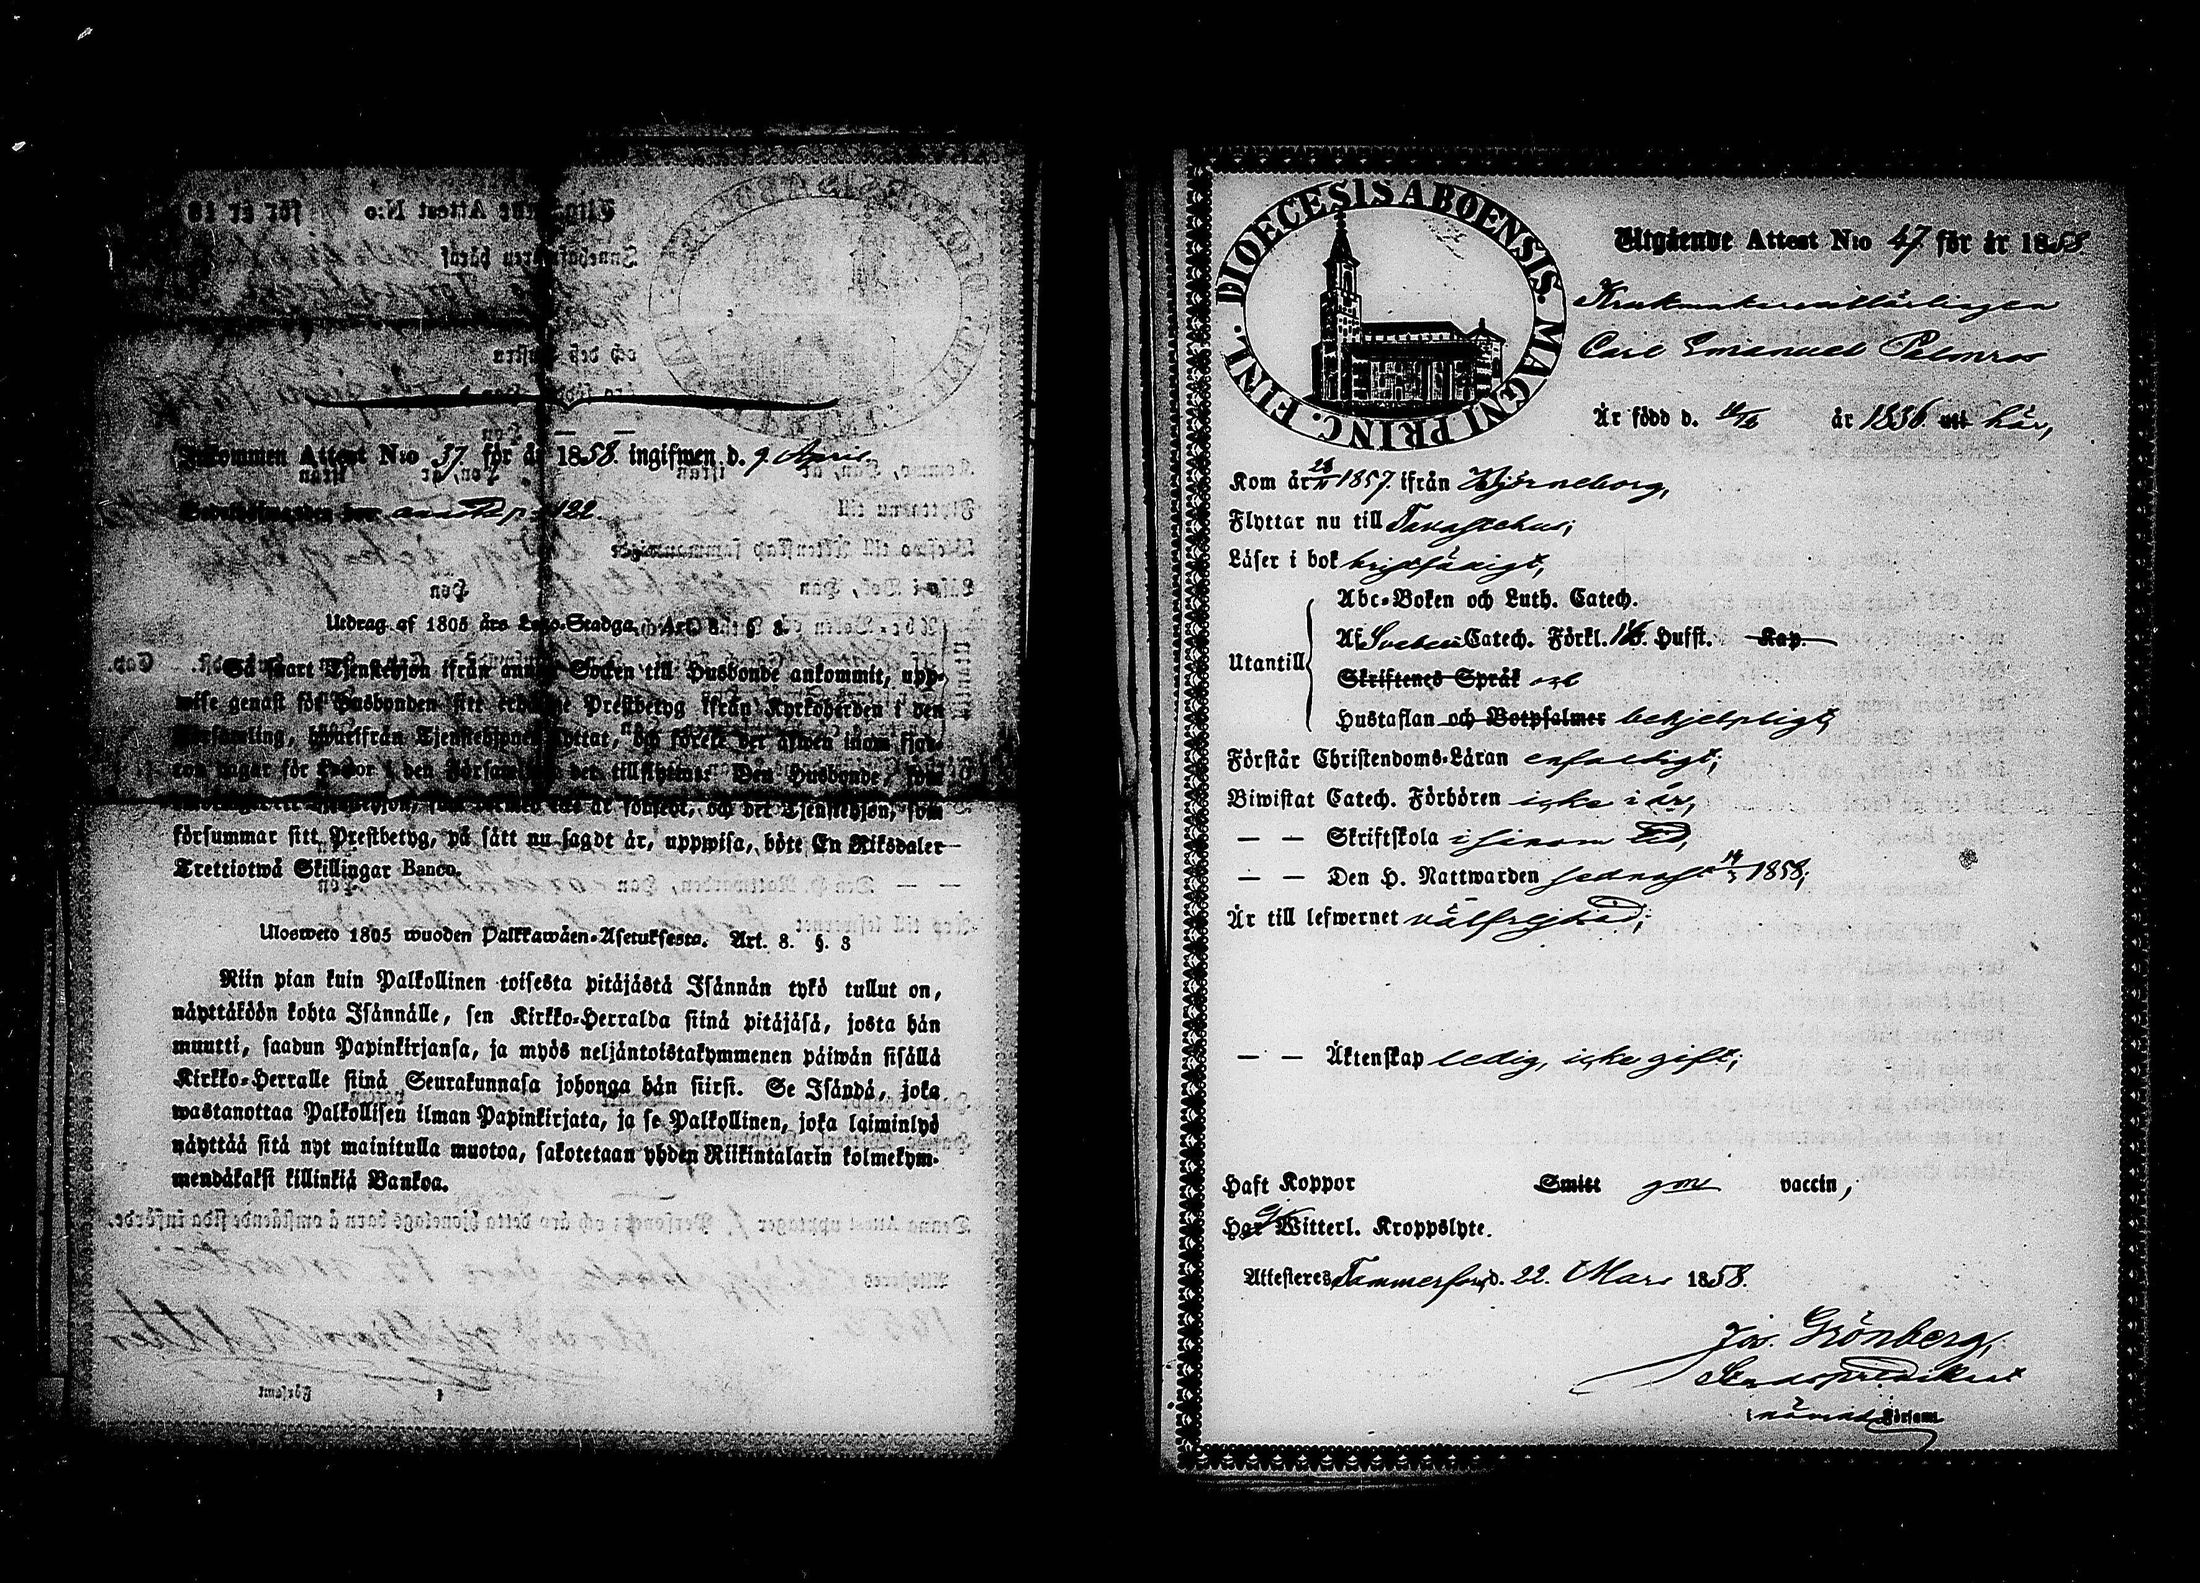 Inkommen Attest N:o 37 för år 1858. ingifwen d. 9 April
p. 122.
Utdrag af 1805 års Lego-Stadga, Art. 8 § 8.
Så snart Tjenstehjon ifrån annan Socken till Husbonde ankommit, upp-
wise genast för Husbonden sitt erhållne Prestbetyg ifrån Kyrkoherden i den
Församling, hwarifrån Tjenstehjonet flyttat, och förete det äfwen inom fjor-
ton dagar för Pastor i den Församling det tillflyttat. Den Husbonde, som
emottager ett Tjenstehjon, som dermed icke är försedt, och det Tjenstehjon, som
försummar sitt Prestbetyg, på sätt nu sagdt är, uppwisa, böte En Riksdaler
Trettiotwå Skillingar Banco.
Ulosweto 1805 wuoden Palkkawäen-Asetuksesta. Art. 8. §. 8
Niin pian kuin Palkollinen toisesta pitäjästä Isännän tykö tullut on,
näyttäköön kohta Isännälle, sen Kirkko-Herralda siinä pitäjäsä, josta hän
muutti, saadun Papinkirjansa, ja myös neljäntoistakymmenen päiwän sisällä
Kirkko-Herralle siinä Seurakunnasa johonga hän siirsi. Se Isändä, joka
wastanottaa Palkollisen ilman Papinkirjata, ja se Palkollinen, joka laiminlyö
näyttää sitä nyt mainitulla muotoa, sakotetaan yhden Riikintalarin kolmekym-
mendäkaksi killinkiä Bankoa.
DIOECESIS ABOENSIS. MAGNI PRINC. FINL.
Utgående Attest N:o 47 för år 1858.
Carl Emanuel Palmros
Är född d. år 1836 utt här,
Kom år 1857. ifrån Björneborg,
Flyttar nu till Tavastehus;
Läser i bok
Abc-Boken och Luth. Catech.
Af Svebel. Catech. Förkl. Hufst. Kap.
Utantill
Skriftenes Språk
Hustaflan och Botpsalmer behjelpligt,
Förstår Christendoms-Läran enfaldigt;
Biwistat Catech. Förhören icke i år,
— — Skriftskola i sinom tid,
— — Den H. Nattwarden sednast 14/3 1858;
Är till lefwernet välfrejdad;
— — Äktenskap ledig, icke gift;
Haft Koppor Smitt gm vaccin,
Har Witterl. Kroppslyte.
Attesteres Tammerfors, d. 22. Mars 1858.
Jos. Grönberg,
Stadspredikant
i nämnda Församl.